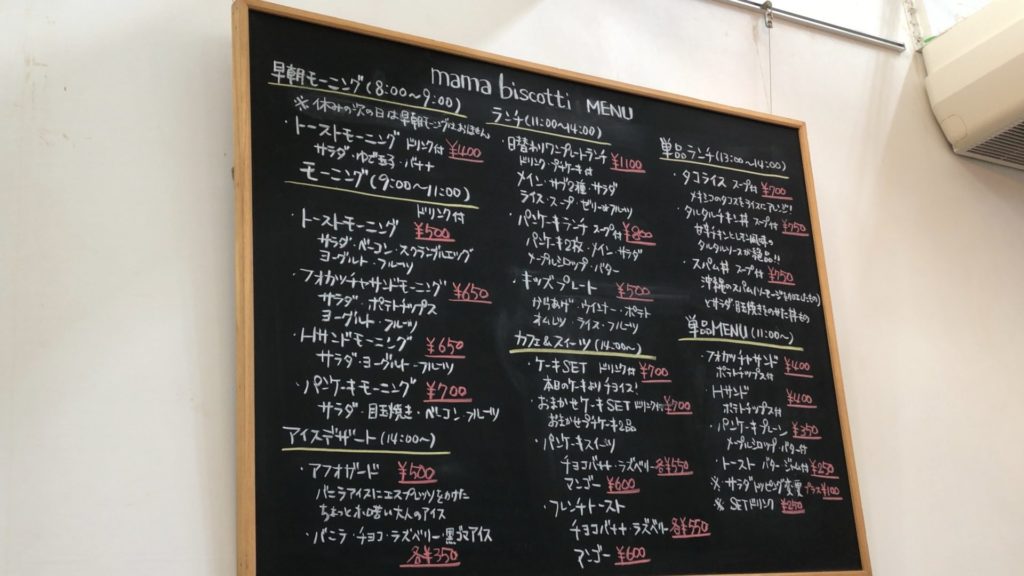 mama biscotti MENU
早朝モーニング(8:00〜9:00)
※休みの次の日は早朝モーニングはお休み
・トーストモーニング ドリンク付 ¥400
サラダ・ゆで玉子・バナナ
モーニング(9:00〜11:00)
ドリンク付
・トーストモーニング ¥500
サラダ・ベーコン・スクランブルエッグ
ヨーグルト・フルーツ
・フォカッチャサンドモーニング ¥650
サラダ・ポテトチップス
ヨーグルト・フルーツ
・Hサンドモーニング ¥650
サラダ・ヨーグルト・フルーツ
・パンケーキモーニング ¥700
サラダ・目玉焼き・ベーコン・フルーツ
アイスデザート(14:00〜)
・アフォガード ¥500
バニラアイスにエスプレッソをかけた
ちょっとホロ苦い大人のアイス
・バニラ・チョコ・ラズベリー・黒ゴマアイス
各¥350
ランチ(11:00〜14:00)
・日替わりワンプレートランチ ¥1100
ドリンク・プチケーキ付
メイン・サブ2種・サラダ
ライス・スープ・ゼリーorフルーツ
・パンケーキランチ スープ付 ¥800
パンケーキ2枚・メイン・サラダ
メープルシロップ・バター
・キッズプレート ¥500
からあげ・ウインナー・ポテト
オムレツ・ライス・フルーツ
カフェ&スイーツ(14:00〜)
・ケーキSET ドリンク付 ¥700
本日のケーキよりチョイス!
・おまかせケーキSET ドリンク付 ¥700
おまかせプチケーキ2品
・パンケーキスイーツ
チョコバナナ・ラズベリー 各¥550
マンゴー ¥600
・フレンチトースト
チョコバナナ・ラズベリー 各¥550
マンゴー ¥600
単品ランチ(13:00〜14:00)
・タコライス スープ付 ¥700
メキシコのタコスをライスにアレンジ!
・タルタルチキン丼 スープ付 ¥750
タルタルソースが絶品!!
・スパム丼 スープ付 ¥750
とサラダ・目玉焼きをのせた丼もの
単品MENU(11:00〜)
・フォカッチャサンド ¥400
ポテトチップス付
・Hサンド ¥400
ポテトチップス付
・パンケーキプレーン ¥350
メープルシロップ・バター付
・トースト バター・ジャム付 ¥250
※サラダトッピング変更 プラス¥100
※SETドリンク ¥250